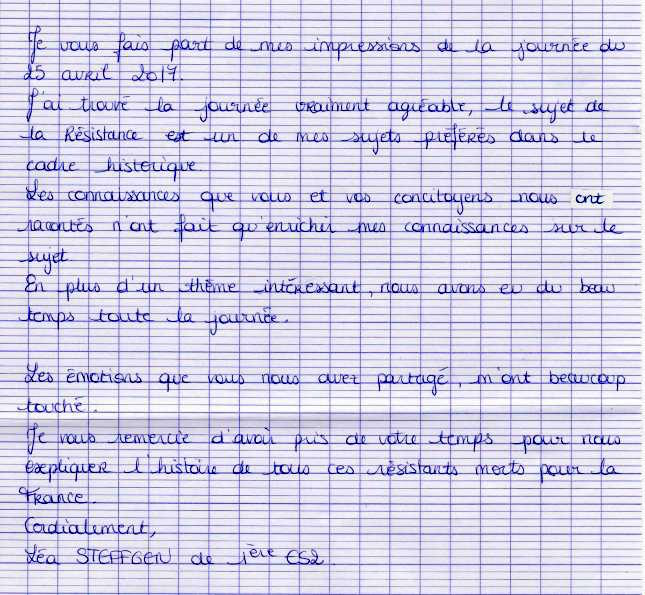 Je vous fais part de mes impressions de la journée du
25 avril 2017.
J'ai trouvé la journée vraiment agréable, le sujet de
la Résistance est un de mes sujets préférés dans le
cadre historique.
Les connaissances que vous et vos concitoyens nous ont
racontés n'ont fait qu'enrichir mes connaissances sur le
sujet
En plus d'un thème intéressant, nous avons eu du beau
temps toute la journée.
Les émotions que vous nous avez partagé, m'ont beaucoup
touché.
Je vous remercie d'avoir pris de votre temps pour nous
expliquer l'histoire de tous ces résistants morts pour la
France.
Cordialement,
Léa STEFFGEN de 1ère ES2.